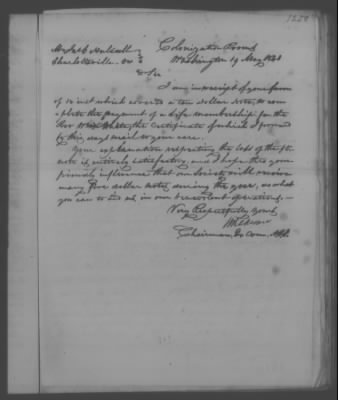 1250
Colonization Rooms
Washington 19 May 1841
Charlottesville
Sir
I am in receipt of your favor
of 15 inst which covered a ten dollar note, to com
plete the payment of a Life membership for the
Rev the certificate of which I forward
to this day's mail to your care.
Your explanation respecting the loss of the
note is entirely satisfactory, and I hope thro your
friendly influences that our Society will receive
many five dollar notes during the year, as what
you can to aid us in our benevolent operations.
Very Respectfully Yours
Chairman Ex Com